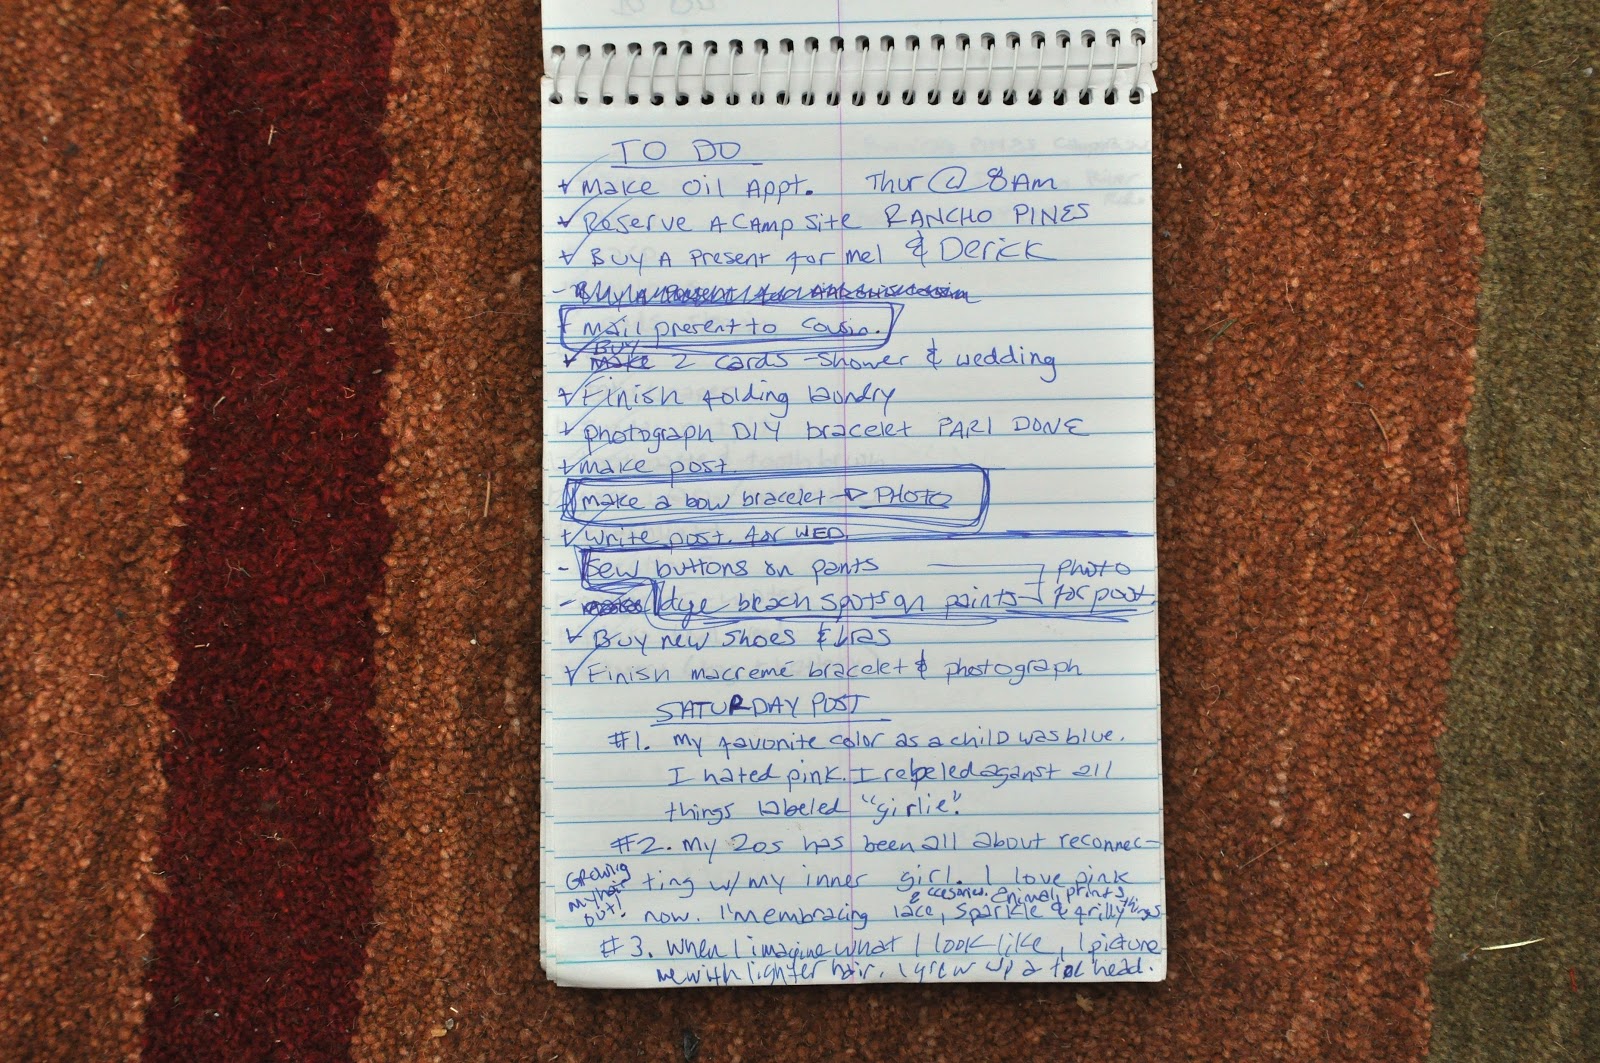 TO DO
Make oil Appt. Thur @ 8AM
Reserve A CAMP Site RANCHO PINES
BUY A Present for mel & Derick
mail present to cousin.
BUY
make 2 cards - shower & wedding
Finish folding laundry
photograph DIY bracelet PART DONE
make post.
make a bow bracelet → PHOTO
write post. for WED
Sew buttons on pants photo
dye bleach spots on paints for post
BUY new shoes & bras
Finish macremé bracelet & photograph
SATURDAY POST
#1. My favorite color as a child was blue.
I hated pink. I rebeled aganst all
things labeled "girlie".
#2. My 20s has been all about reconnec-
ting w/ my inner girl. I love pink
Growing my hair out!
accesories. animal prints
now. I'm embracing lace, sparkle & frilly things
#3. When I imagine what I look like, I picture
me with lighter hair. I grew up a toe head.